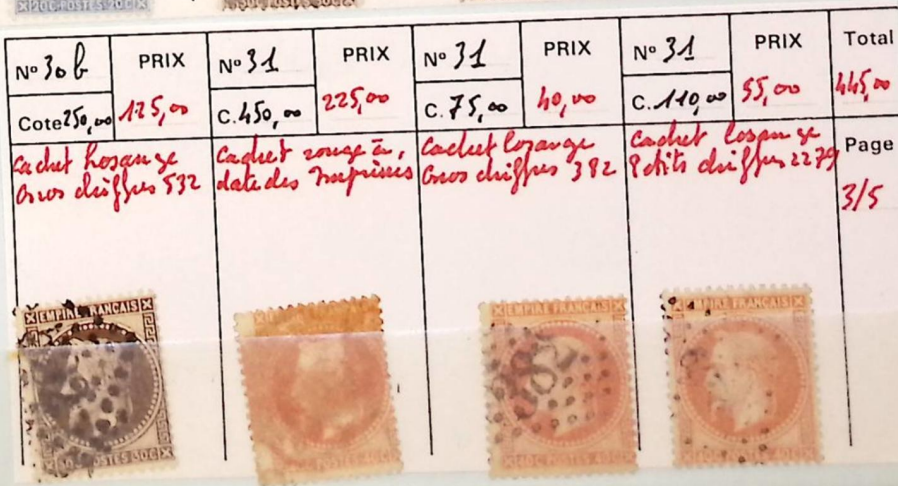 20C POSTES 20C
Nº 30b PRIX Nº 31 PRIX Nº 31 PRIX Nº 31 PRIX Total
Cote 250,00 125,00 C. 450,00 225,00 C. 75,00 40,00 C. 110,00 55,00 445,00
Cachet Losange
Gros chiffres 532
Cachet rouge à,
date des Imprimés
Cachet Losange
Gros chiffres 382
Cachet losange
Petits chiffres 2279
Page
3/5
EMPIRE FRANCAIS
POSTES 30C
POSTES 40C
EMPIRE FRANCAIS
382
40C POSTES 40C
EMPIRE FRANCAIS
40C POSTES 40C